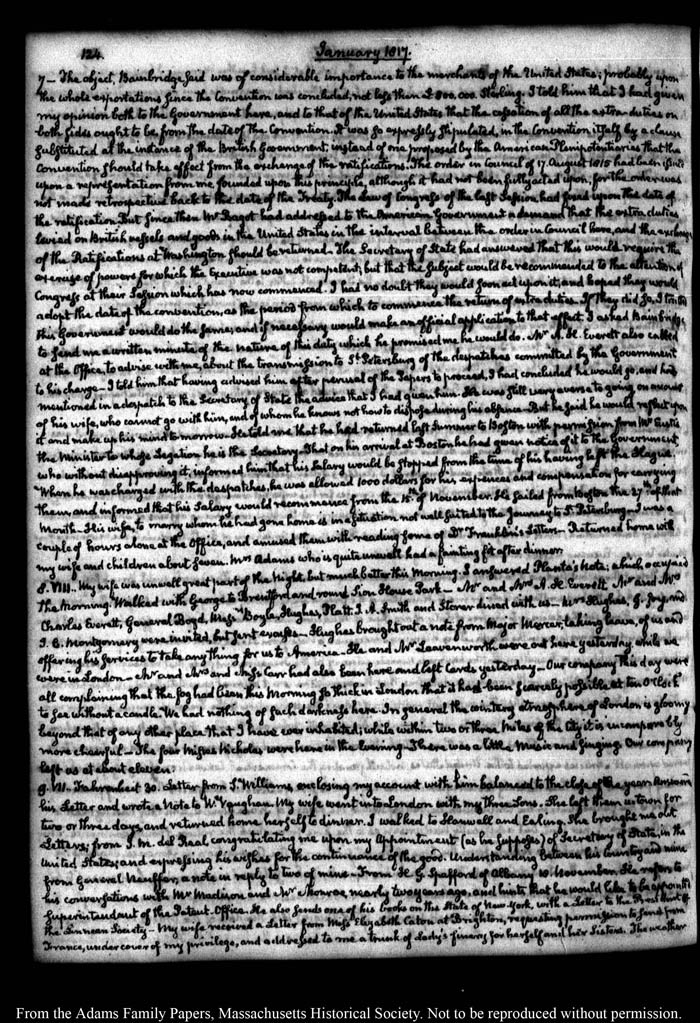 124. January 1817.
7— The object, Bainbridge said was of considerable importance to the merchants of the United States; probably upon
the whole exportations since the Convention was concluded, not less than £800,000 Sterling. I told him that I had given
my opinion both to the Government here, and to that of the United States that the cessation of all the extra-duties on
both sides ought to be from the date of the Convention. It was so expressly stipulated, in the Convention itself by a clause
substituted at the instance of the British Government; instead of one proposed by the American Plenipotentiaries that the
Convention should take effect from the exchange of the ratifications. The order in Council of 17. August 1815 had been issued
upon a representation from me, founded upon this principle, although it had not been fully acted upon, for the order was
not made retrospective back to the date of the Treaty. The Law of Congress of the last Session had fixed upon the date of
the ratification. But since then Mr Bagot had addressed to the American Government a demand that the extra duties
levied on British vessels and goods in the United States in the interval between the order in Council here, and the exchange
of the Ratifications at Washington should be returned— The Secretary of State had answered that this would require the
exercise of powers for which the Executive was not competent; but that the subject would be recommended to the attention of
Congress at their Session which has now commenced. I had no doubt they would soon act upon it, and hoped they would
adopt the date of the convention, as the period from which to commence the return of extra duties. If They did so, I
this Government would do the same; and if necessary would make an official application to that effect. I asked Bainbridge
to send me a written minute of the nature of this duty which he promised me he would do. Mr A. H. Everett also called
at the Office, to advise with me, about the transmission to St. Petersburg of the despatches committed by the Government
to his charge— I told him that having advised him after perusal of the Papers to proceed, I had concluded he would go, and had
mentioned in a despatch to the Secretary of State the advice that I had given him. He was still very averse to going on account
of his wife, who cannot go with him, and of whom he knows not how to dispose during his absence. But he said he would reflect upon
it and make up his mind to-morrow. He told me that he had returned last Summer to Boston with permission from Mr Eustis
the Minister to whose Legation he is the Secretary. That on his arrival at Boston he had given notice of it to the Government,
who without disapproving it, informed him that his Salary would be stopped from the time of his having left the Hague.
When he was charged with the despatches, he was allowed 1000 dollars for his expences and compensation for carrying
them, and informed that his Salary would recommence from the 15th of November. He sailed from Boston the 27th of that
Month. His wife, to marry whom he had gone home is in a situation not well suited to the Journey to St. Petersburg. I was a
couple of hours alone at the Office, and amused them with reading some of Dr Franklin's Letters. Returned home with
my wife and children about seven. Mrs Adams who is quite unwell had a fainting fit after dinner.
8. VIII. My wife was unwell great part of the Night, but much better this Morning. I answered Planta's Note; which occupied
the Morning. Walked with George to Brentford and round Sion House Park— Mr and Mrs A. H. Everett, Mr and Mrs
Charles Everett, General Boyd, Messrs Boyle, Hughes, Platt, J. A. Smith and Storer dined with us— Mrs Hughes, G. Joy, and
J. C. Montgomery were invited, but sent excuses— Hughes brought out a note from Major Mercer, taking leave of us and
offering his services to take any thing for us to America— He and Mr Leavenworth were out here yesterday, while we
were in London— Mr and Mrs and Miss Carr had also been here and left Cards yesterday— Our company this day were
all complaining that the fog had been this Morning so thick in London that it had been scarcely possible at ten O'Clock
to see without a candle. We had nothing of such darkness here. In general the wintery atmosphere of London is gloomy
beyond that of any other place that I have ever inhabited; while within two or three Miles of the City it is incomparably
more cheerful— The four Misses Nicholas were here in the Evening— There was a little Music and Singing. Our company
left us at about eleven.
9. VII. Fahrenheit 30. Letter from S. Williams, enclosing my account with him balanced to the close of the year. Answered
his Letter and wrote a Note to W. Vaughan. My wife went into London with my three Sons. She left them in town for
two or three days, and returned home herself to dinner. I walked to Hanwell and Ealing. She brought me out
Letters; from J. M. del Real congratulating me upon my Appointment (as he supposes) of Secretary of State, in the
United States; and expressing his wishes for the continuance of the good Understanding between his Country and mine
from General Neuffer, a note in reply to two of mine— From H. G. Spafford of Albany 10. November. He refers to
his conversations with Mr Madison and Mr Monroe, nearly two years ago, and hints that he would like to be appointed
Superintendant of the Patent Office. He also sends one of his books on the State of New-York, with a Letter to the President of
the Linnean Society— My wife received a Letter from Miss Elizabeth Caton at Brighton, requesting permission to send from
France, under cover of my privilege, and addressed to me a trunk of Lady's finery for herself and her Sisters. The weather
From the Adams Family Papers, Massachusetts Historical Society. Not to be reproduced without permission.